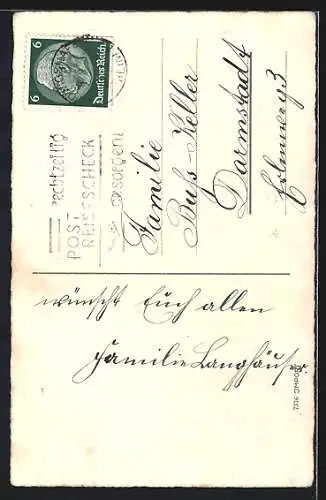 6 6
Deutsches Reich
rechtzeitig
POST-
REISESCHECK
besorgen!
Familie
Buß-Keller
Darmstadt
Erlenweg 3
wünscht Euch allen
Familie Langhäuser
7316